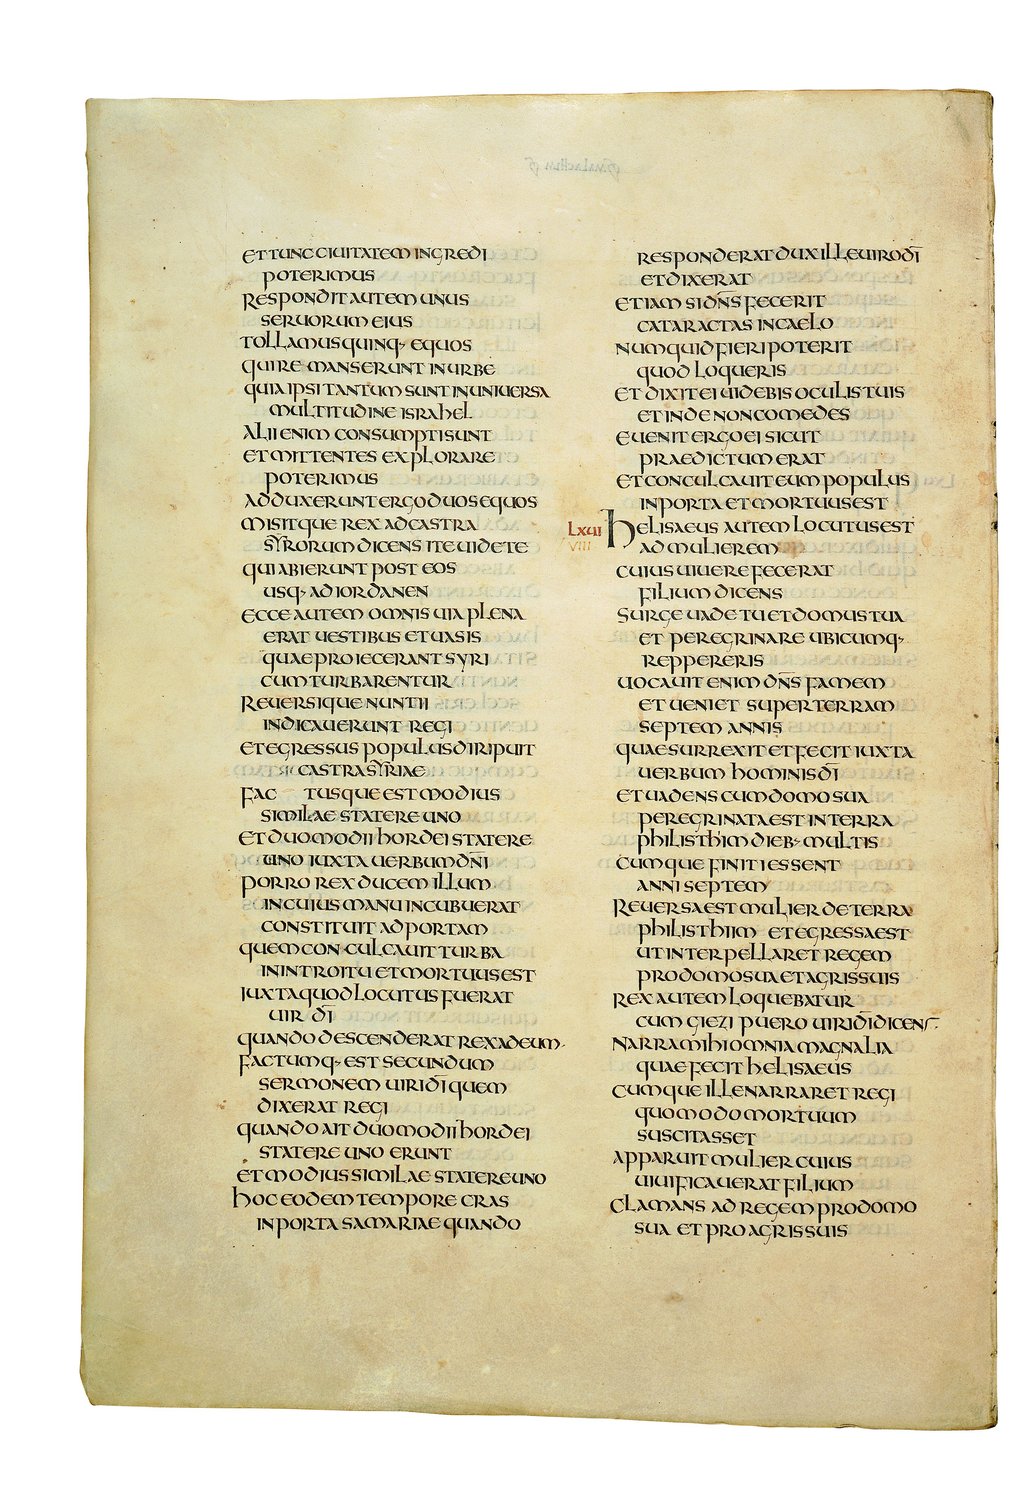 ET TUNC CIUITATEM INGREDI
POTERIMUS
RESPONDIT AUTEM UNUS
SERUORUM EIUS
TOLLAMUS QUINQ· EQUOS
QUI REMANSERUNT IN URBE
QUIA IPSI TANTUM SUNT IN UNIUERSA
MULTITUDINE ISRAHEL
ALII ENIM CONSUMPTI SUNT
ET MITTENTES EXPLORARE
POTERIMUS
ADDUXERUNT ERGO DUOS EQUOS
MISITQUE REX AD CASTRA
SYRORUM DICENS ITE UIDETE
QUI ABIERUNT POST EOS
USQ· AD IORDANEN
ECCE AUTEM OMNIS UIA PLENA
ERAT UESTIBUS ET UASIS
QUAE PROIECERANT SYRI
CUM TURBARENTUR
REUERSIQUE NUNTII
INDICAUERUNT REGI
ET EGRESSUS POPULUS DIRIPUIT
CASTRA SYRIAE
FACTUSQUE EST MODIUS
SIMILAE STATERE UNO
ET DUO MODII HORDEI STATERE
UNO IUXTA UERBUM DN̄I
PORRO REX DUCEM ILLUM
IN CUIUS MANU INCUBUERAT
CONSTITUIT AD PORTAM
QUEM CONCULCAUIT TURBA
IN INTROITU ET MORTUUS EST
IUXTA QUOD LOCUTUS FUERAT
UIR DĪ
QUANDO DESCENDERAT REX AD EUM·
FACTUMQ· EST SECUNDUM
SERMONEM UIRI DĪ QUEM
DIXERAT REGI
QUANDO AIT DUO MODII HORDEI
STATERE UNO ERUNT
ET MODIUS SIMILAE STATERE UNO
HOC EODEM TEMPORE CRAS
IN PORTA SAMARIAE QUANDO
RESPONDERAT DUX ILLE UIRO DĪ
ET DIXERAT
ETIAM SI DN̄S FECERIT
CATARACTAS IN CAELO
NUMQUID FIERI POTERIT
QUOD LOQUERIS
ET DIXIT EI UIDEBIS OCULIS TUIS
ET INDE NON COMEDES
EUENIT ERGO EI SICUT
PRAEDICTUM ERAT
ET CONCULCAUIT EUM POPULUS
IN PORTA ET MORTUUS EST
LXUI HELISAEUS AUTEM LOCUTUS EST
VIII AD MULIEREM
CUIUS UIUERE FECERAT
FILIUM DICENS
SURGE UADE TU ET DOMUS TUA
ET PEREGRINARE UBICUMQ·
REPPERERIS
UOCAUIT ENIM DN̄S FAMEM
ET UENIET SUPER TERRAM
SEPTEM ANNIS
QUAE SURREXIT ET FECIT IUXTA
UERBUM HOMINIS DĪ
ET UADENS CUM DOMO SUA
PEREGRINATA EST IN TERRA
PHILISTHIM DIEB· MULTIS
CUMQUE FINITI ESSENT
ANNI SEPTEM
REUERSA EST MULIER DE TERRA
PHILISTHIIM ET EGRESSA EST
UT INTERPELLARET REGEM
PRO DOMO SUA ET AGRIS SUIS
REX AUTEM LOQUEBATUR
CUM GIEZI PUERO UIRI DĪ DICENS
NARRA MIHI OMNIA MAGNALIA
QUAE FECIT HELISAEUS
CUMQUE ILLE NARRARET REGI
QUOMODO MORTUUM
SUSCITASSET
APPARUIT MULIER CUIUS
UIUIFICAUERAT FILIUM
CLAMANS AD REGEM PRO DOMO
SUA ET PRO AGRIS SUIS